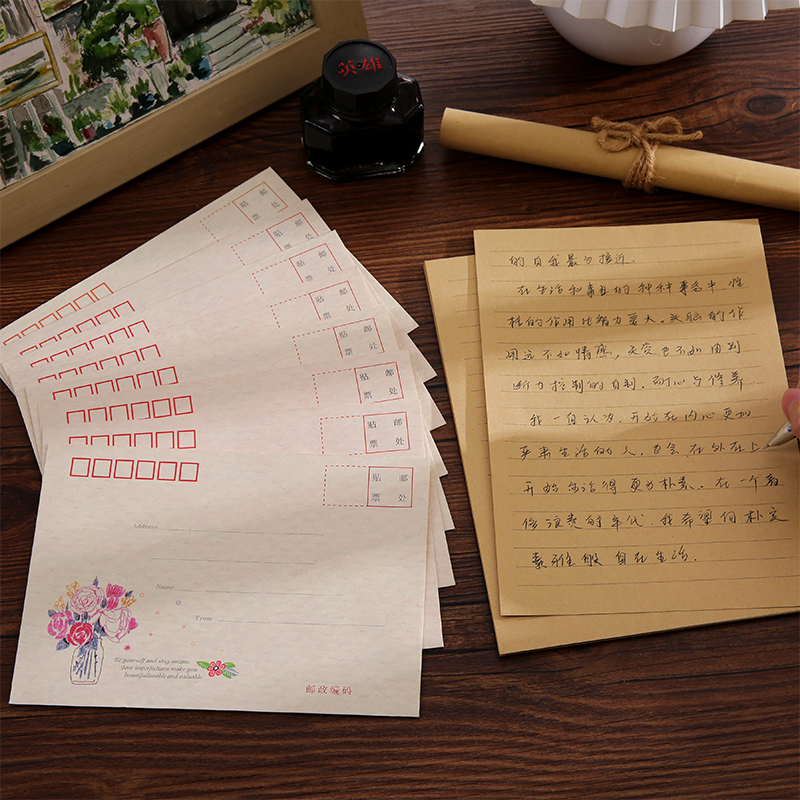 英雄
贴 邮
票 处
贴 邮
票 处
贴 邮
票 处
贴 邮
票 处
贴 邮
票 处
贴 邮
票 处
贴 邮
票 处
贴 邮
票 处
Address
Name
From
Be yourself and stay unique
Your imperfections make you
beautiful, lovable and valuable
邮政编码
的自我最为接近。
在生活和事业的种种事务中，性
格的作用比智力要大，头脑的作
用远不如情感，天资也不如由判
断力控制的自制，耐心与修养
我一直认为，开始在内心更加
严肃生活的人，也会在外在上
开始生活得更为朴素。在一个奢
侈浪费的年代，我希望
素雅般自在生活.